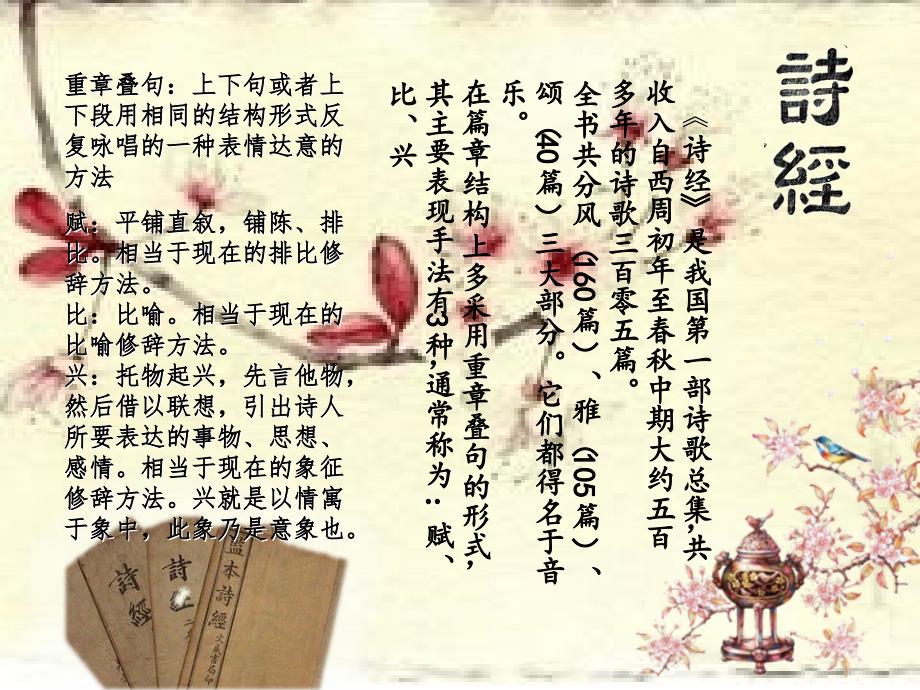 詩經
《诗经》是我国第一部诗歌总集,共
收入自西周初年至春秋中期大约五百
多年的诗歌三百零五篇。
全书共分风（160篇）、雅（105篇）、
颂（40篇）三大部分。它们都得名于音
乐。
在篇章结构上多采用重章叠句的形式,
其主要表现手法有3种,通常称为：赋、
比、兴
重章叠句：上下句或者上
下段用相同的结构形式反
复咏唱的一种表情达意的
方法
赋：平铺直叙，铺陈、排
比。相当于现在的排比修
辞方法。
比：比喻。相当于现在的
比喻修辞方法。
兴：托物起兴，先言他物，
然后借以联想，引出诗人
所要表达的事物、思想、
感情。相当于现在的象征
修辞方法。兴就是以情寓
于象中，此象乃是意象也。
監本詩經
書局印
詩
詩經